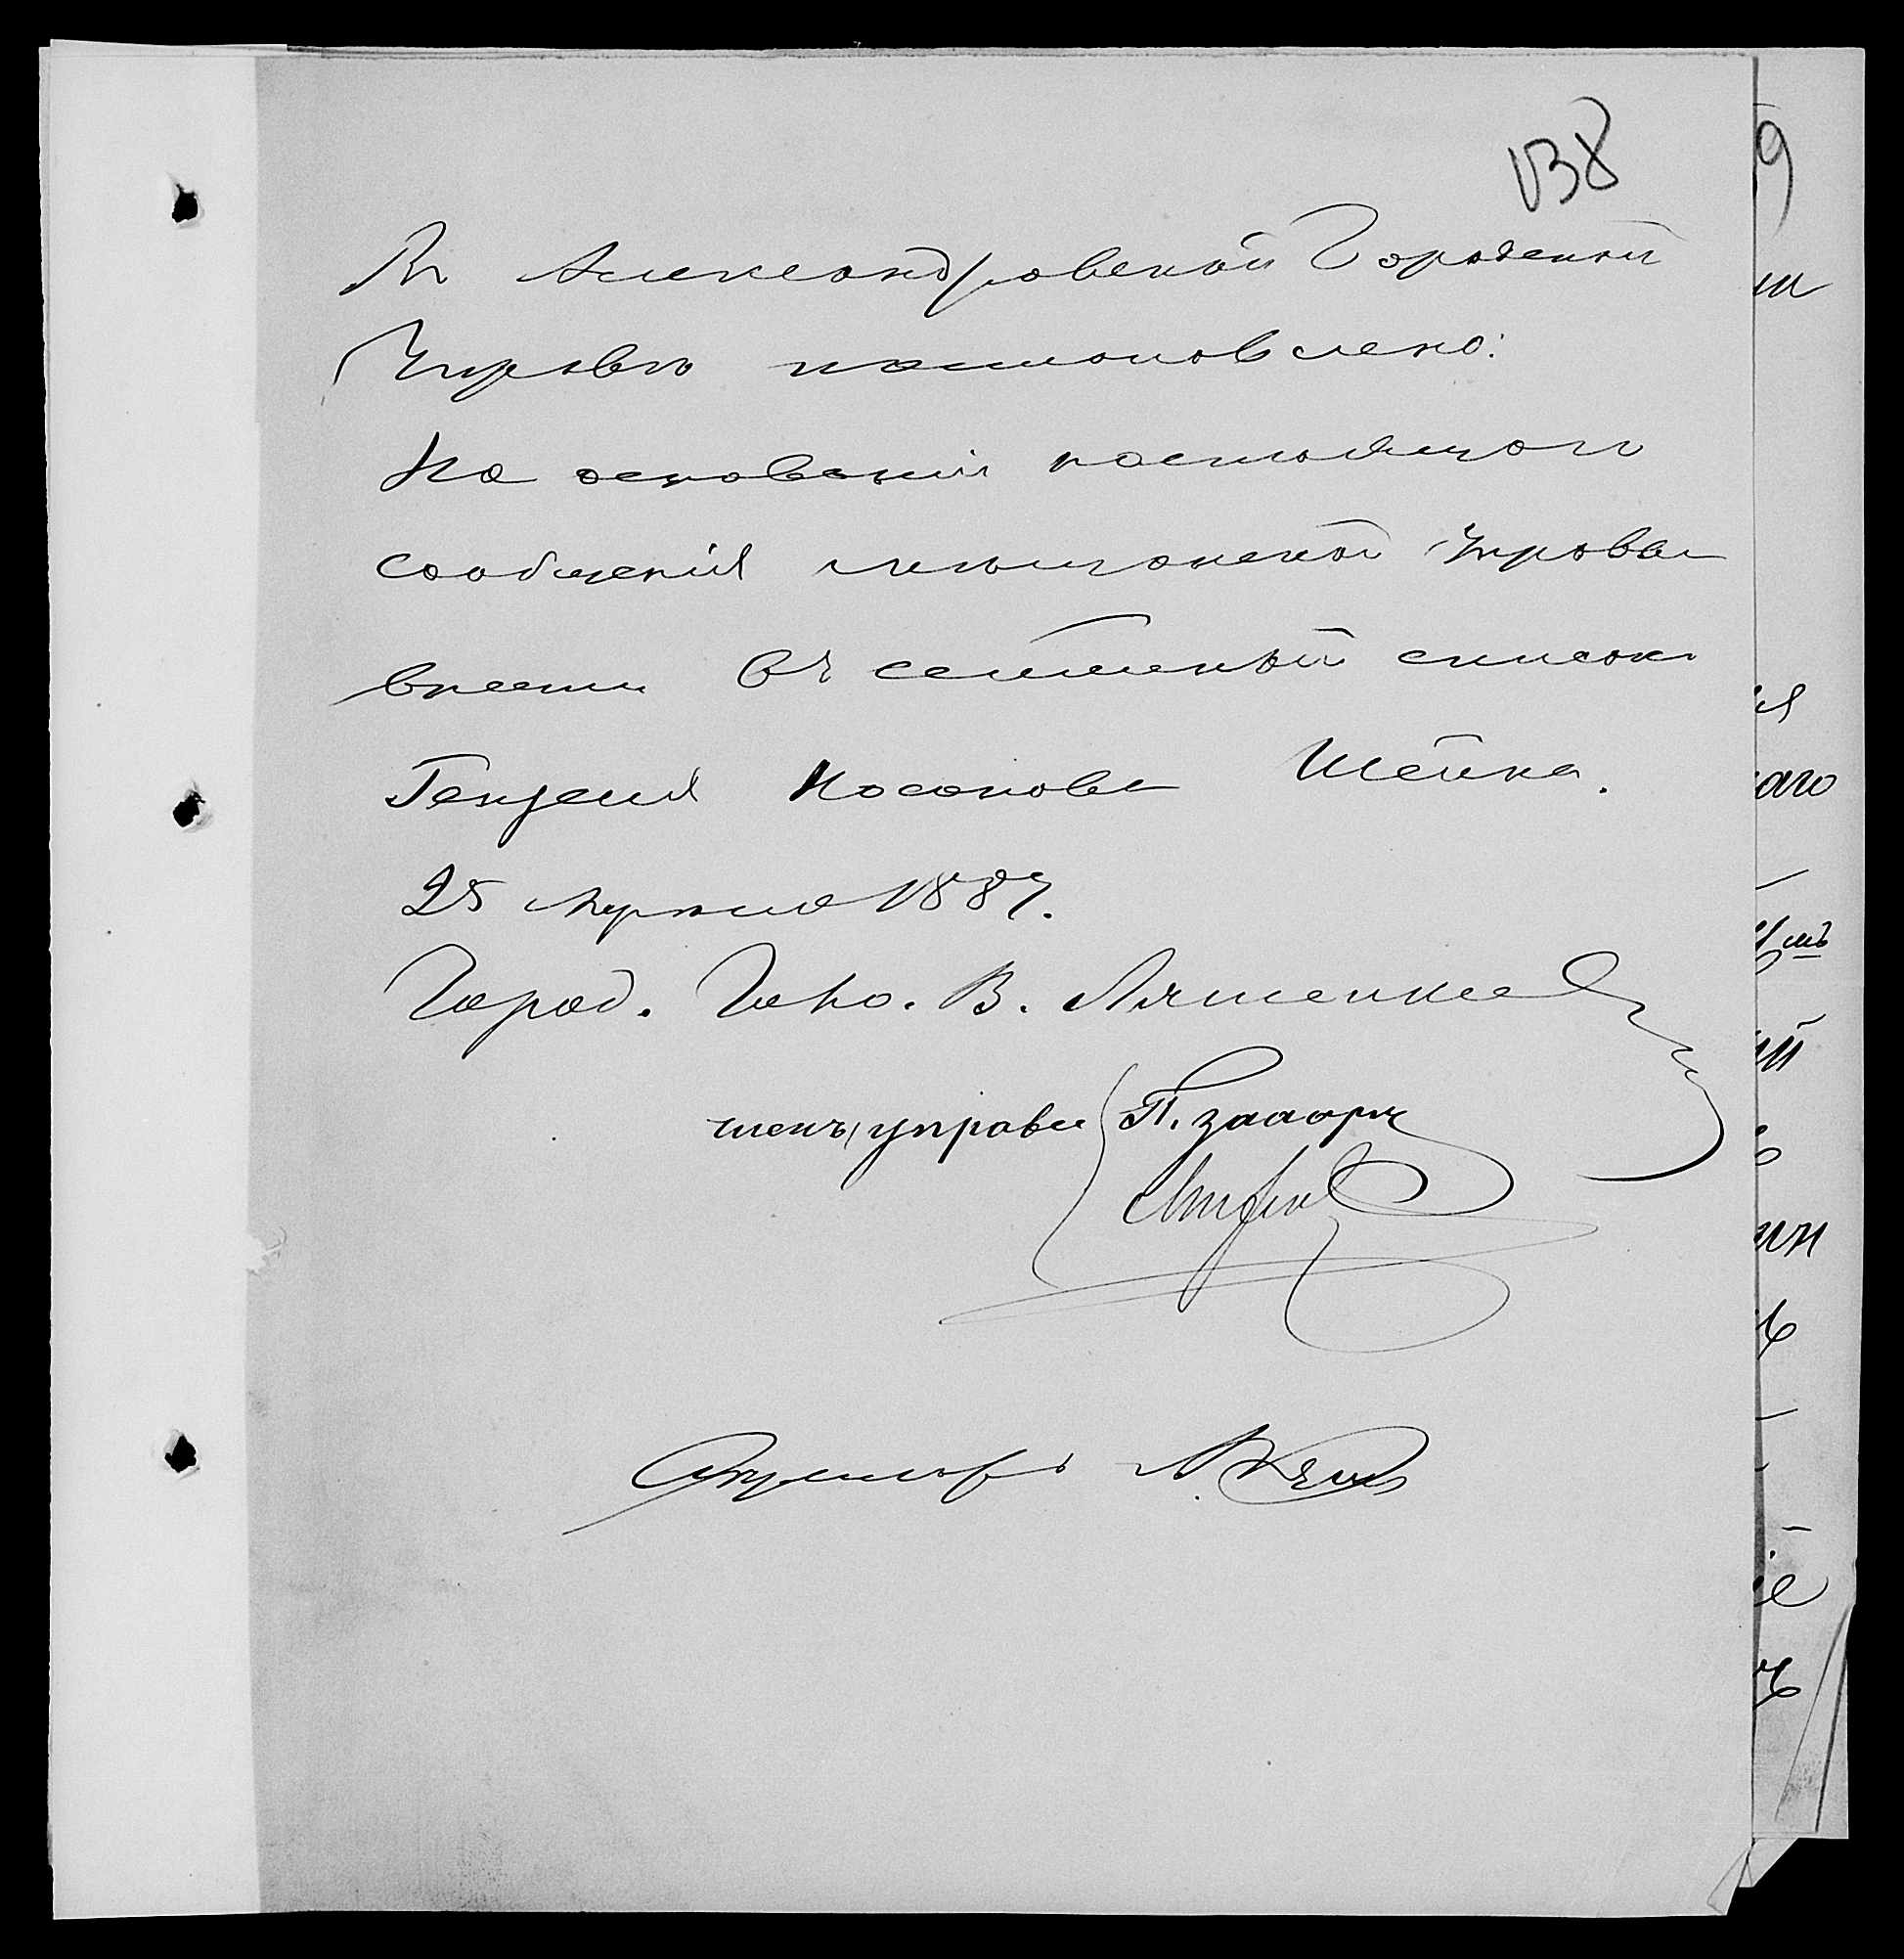 138
Въ Александровской Городской
Управѣ постановлено:
На основаніи настоящаго
сообщенія мѣщанской Управы
внести въ семейный списокъ
Генделя Носонова Шейна.
25 Марта 1887.
Город. Голо. В. Ляшенко
членъ управы П. Захарч
Бухгалтеръ
9
ія
аго
мъ
ій
ин